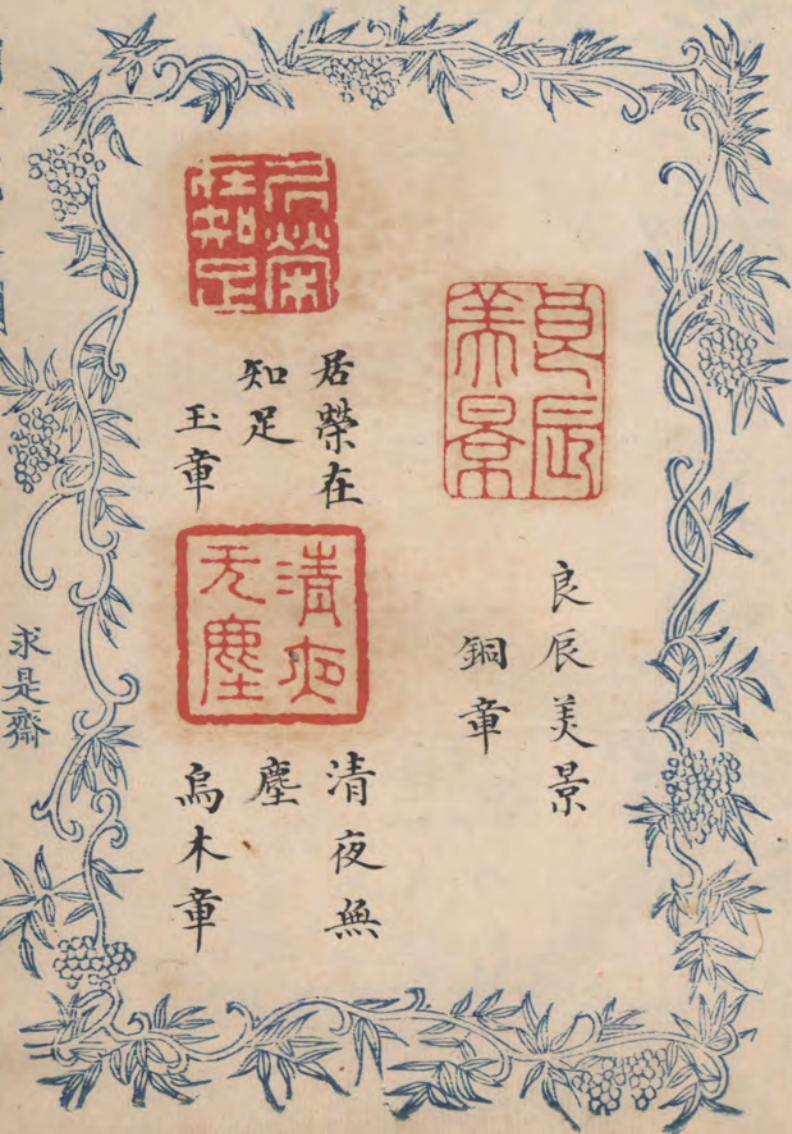 良辰美景
良辰美景
銅章
居榮在知足
居榮在
知足
玉章
清夜无塵
清夜無
塵
烏木章
求是齋